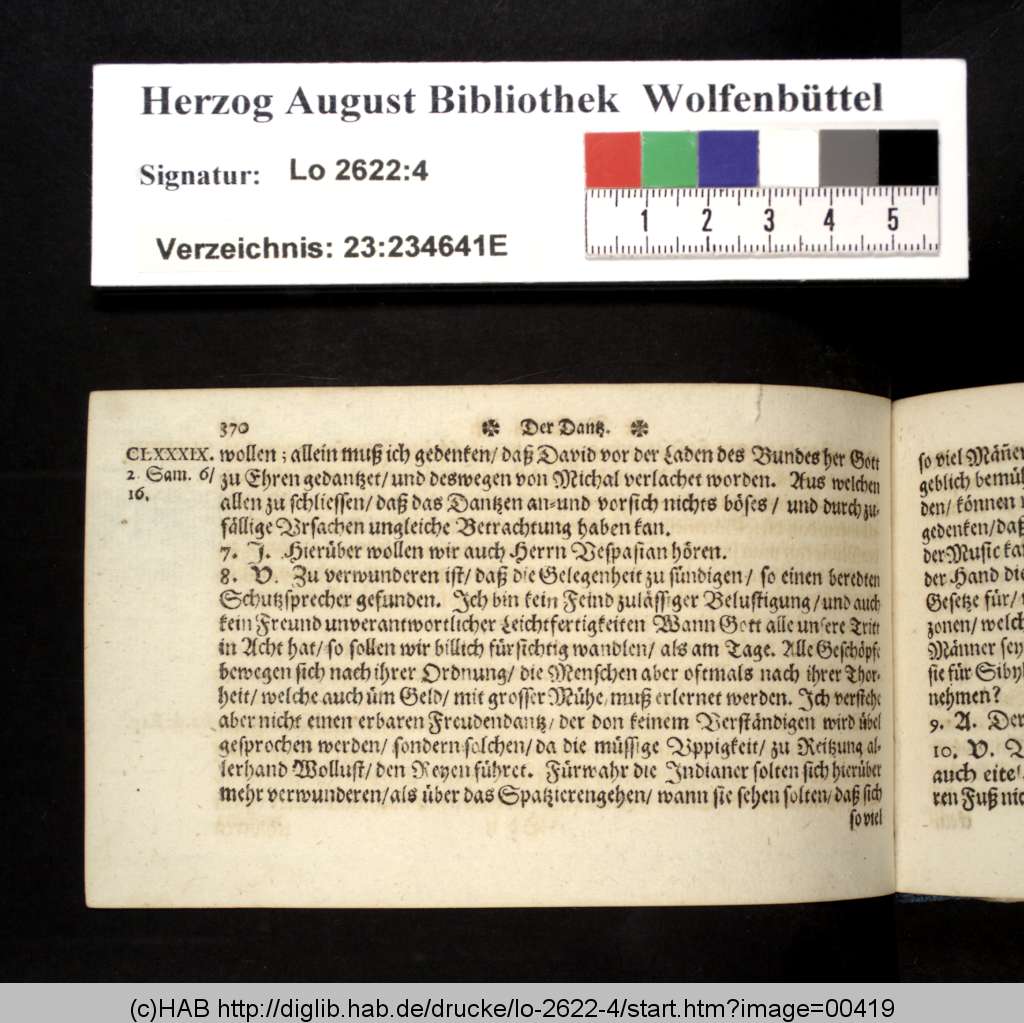 Herzog August Bibliothek Wolfenbüttel
Signatur: Lo 2622:4
1 2 3 4 5
Verzeichnis: 23:234641E
370 Der Dantz.
CLXXXIX. wollen; allein muß ich gedenken/ daß David vor der Laden des Bundes her Gott
2. Sam. 6/ zu Ehren gedantzet/ und deswegen von Michal verlachet worden. Aus welchen
16. allen zu schliessen/ daß das Dantzen an-und vorsich nichts böses/ und durch zu-
fällige Vrsachen ungleiche Betrachtung haben kan.
7. J. Hierüber wollen wir auch Herrn Vespasian hören.
8. V. Zu verwunderen ist/ daß die Gelegenheit zu sündigen/ so einen beredten
Schutzsprecher gefunden. Ich bin kein Feind zulässiger Belustigung/ und auch
kein Freund unverantwortlicher Leichtfertigkeiten Wann Gott alle unsere Tritt
in Acht hat/ so sollen wir billich fürsichtig wandlen/ als am Tage. Alle Geschöpfe
bewegen sich nach ihrer Ordnung/ die Menschen aber oftmals nach ihrer Thor-
heit/ welche auch üm Geld/ mit grosser Mühe/ muß erlernet werden. Ich verstehe
aber nicht einen erbaren Freudendantz/ der don keinem Verständigen wird übel
gesprochen werden/ sondern solchen/ da die müssige Vppigkeit/ zu Reitzung al-
lerhand Wollust/ den Reyen führet. Fürwahr die Indianer solten sich hierüber
mehr verwunderen/ als über das Spatzierengehen/ wann sie sehen solten/ daß sich
so viel
so viel Mäñer
geblich bemü
den/ können
gedenken/ daß
der Music ka
der Hand die
Gesetze für/
zonen/ welch
Männer sey
sie für Siby
nehmen?
9. A. Der
10. V.
auch eite
ren Fuß nic
(c)HAB http://diglib.hab.de/drucke/lo-2622-4/start.htm?image=00419